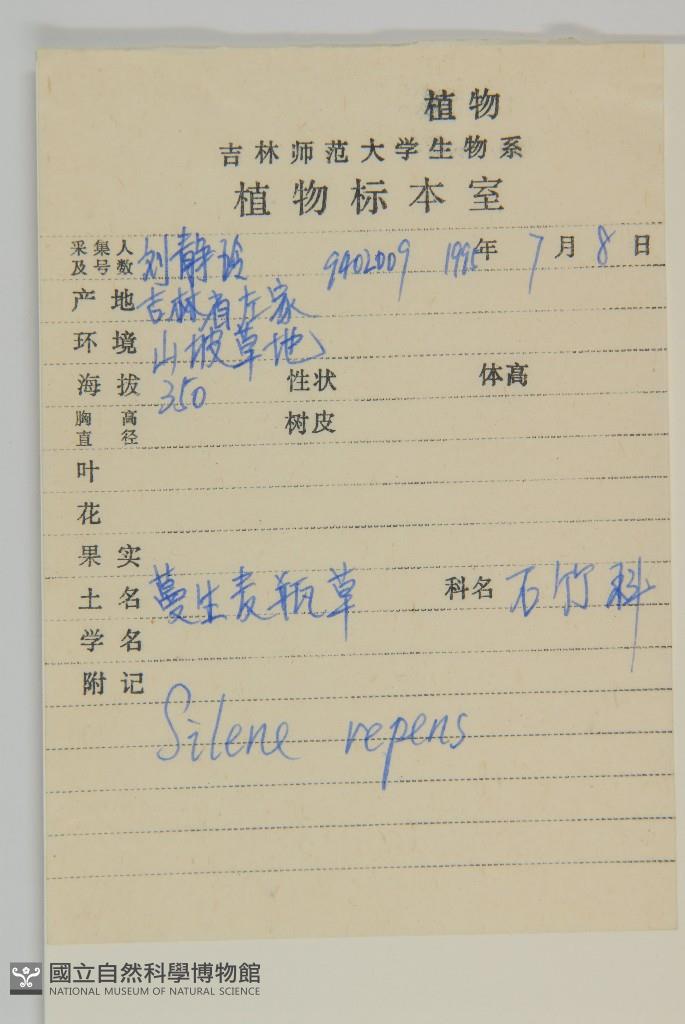 植物
吉林师范大学生物系
植物标本室
采集人及号数 刘静玲 9402009 1995年 7月 8日
产地 吉林省左家
环境 山坡草地
海拔 350 性状 体高
胸高直径 树皮
叶
花
果实
土名 蔓生麦瓶草 科名 石竹科
学名
附记
Silene repens
國立自然科學博物館
NATIONAL MUSEUM OF NATURAL SCIENCE